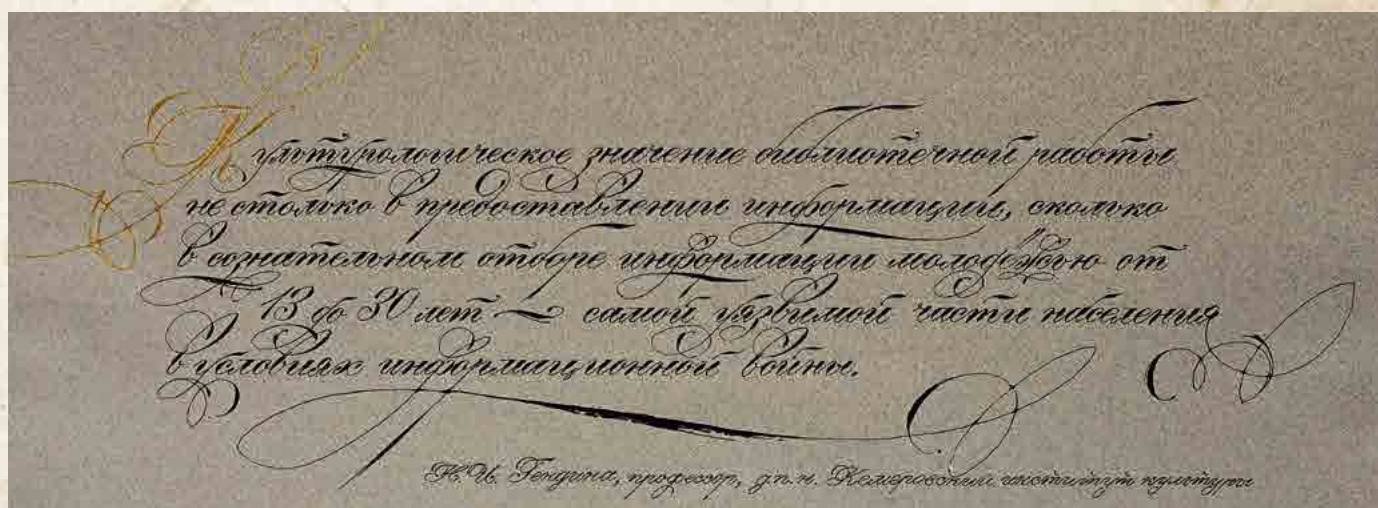 Культурологическое значение библиотечной работы
не столько в предоставлении информации, сколько
в сознательном отборе информации молодёжью от
13 до 30 лет — самой уязвимой части населения
в условиях информационной войны.
Н.И. Гендина, профессор, д.п.н. Кемеровский институт культуры